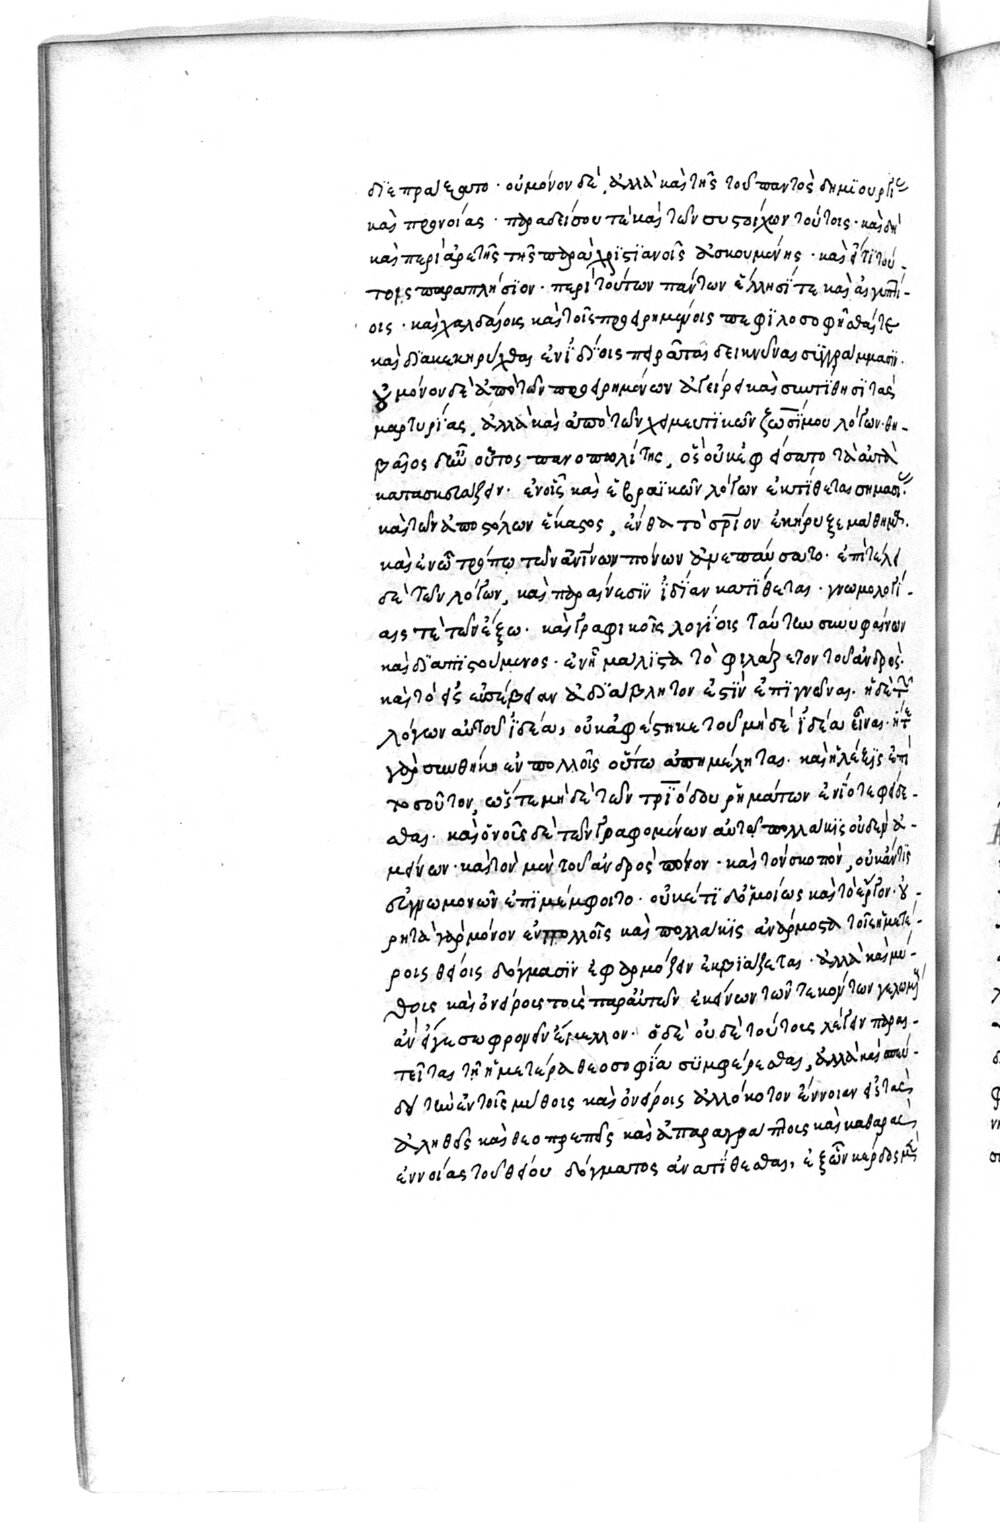 διεπράξατο· οὐ μόνον δὲ, ἀλλὰ καὶ τῆς τοῦ παντὸς δημιουργίας
καὶ προνοίας· παραδείσου τε καὶ τῶν συστοίχων τούτοις· καὶ δὴ
καὶ περὶ ἀρετῆς τῆς παρὰ χριστιανοῖς ἀσκουμένης· καὶ εἴ τι τού-
τοις παραπλήσιον· περὶ τούτων πάντων ἕλλησί τε καὶ αἰγυπτί-
οις· καὶ χαλδαίοις καὶ τοῖς προειρημένοις πεφιλοσοφῆσθαί τε
καὶ διακεκηρύχθαι ἐν ἰδίοις πειρᾶται δεικνύναι συγγράμμασιν.
οὐ μόνον δὲ ἀπὸ τῶν προειρημένων ἀγείρει καὶ συντίθησι τὰς
μαρτυρίας, ἀλλὰ καὶ ἀπὸ τῶν χειμευτικῶν ζωσίμου λόγων· θη-
βαῖος δ' ἦν οὗτος πανοπολίτης, οὐκ ἐφείσατο τὰ αὐτὰ
κατασκευάζειν· ἐν οἷς καὶ ἑβραϊκῶν λόγων ἐκτίθεται σημασίας·
καὶ τῶν ἀποστόλων ἕκαστος, ἔνθα τὸ σωτήριον ἐκήρυξε μάθημα.
καὶ ἐν ᾧ τρόπῳ τῶν ἀνθρωπίνων πόνων ἀνεπαύσατο· ἐπὶ τέλει
δὲ τῶν λόγων, καὶ παραίνεσιν ἰδίαν κατατίθεται· γνωμολογί-
αις τε τῶν ἔξω· καὶ γραφικοῖς λογίοις ταύτην συνυφαίνων
καὶ διαπιστούμενος· ἐν ᾗ μάλιστα τὸ φιλάρετον τοῦ ἀνδρὸς·
καὶ τὸ εἰς εὐσέβειαν ἀδιάβλητον ἔστιν ἐπιγνῶναι. ἡ δὲ τῶν
λόγων αὐτοῦ ἰδέα, οὐκ ἀφέστηκε τοῦ μηδὲ ἰδέα εἶναι· ἥ τε
γὰρ συνθήκη ἐν πολλοῖς οὕτω ἀπημέληται· καὶ ἡ λέξις ἐπὶ
τοσοῦτον, ὥστε μηδὲ τῶν τριόδου ῥημάτων ἐνίοτε φείδε-
σθαι· καὶ ὄνοις δὲ τῶν γραφομένων αὐτοῦ πολλάκις οὐδὲν ἀ-
μείνων· καὶ τὸν μὲν τοῦ ἀνδρὸς πόνον· καὶ τὸν σκοπὸν, οὐκ ἄν τις
εὐγνωμονῶν ἐπιμέμφοιτο· οὐκέτι δ' ὁμοίως καὶ τὸ ἔργον· οὐ
ῥητὰ γὰρ μόνον ἐν πολλοῖς καὶ πολλάκις ἀνάρμοστα τοῖς ἡμετέ-
ροις θείοις δόγμασιν ἐφαρμόζειν ἐκβιάζεται· ἀλλὰ καὶ μύ-
θοις καὶ ὀνείροις τοῖς παρ' αὐτῶν ἐκείνων τῶν τεκόντων γελωμένοις
ἂν εἴγε σωφρονεῖν ἔμελλον· ὁ δὲ οὐδὲ τούτοις λέγειν παραι-
τεῖται τῇ ἡμετέρα θεοσοφία συμφέρεσθαι, ἀλλὰ καὶ σπεύ-
δει τὴν ἐν τοῖς μύθοις καὶ ὀνείροις ἀλλόκοτον ἔννοιαν εἰς τὰς
ἀληθεῖς καὶ θεοπρεπεῖς καὶ ἀπαραγράπτοις καὶ καθαρὰς
ἐννοίας τοῦ θείου δόγματος ἀνατίθεσθαι, ἐξ ὧν κέρδος μὲν